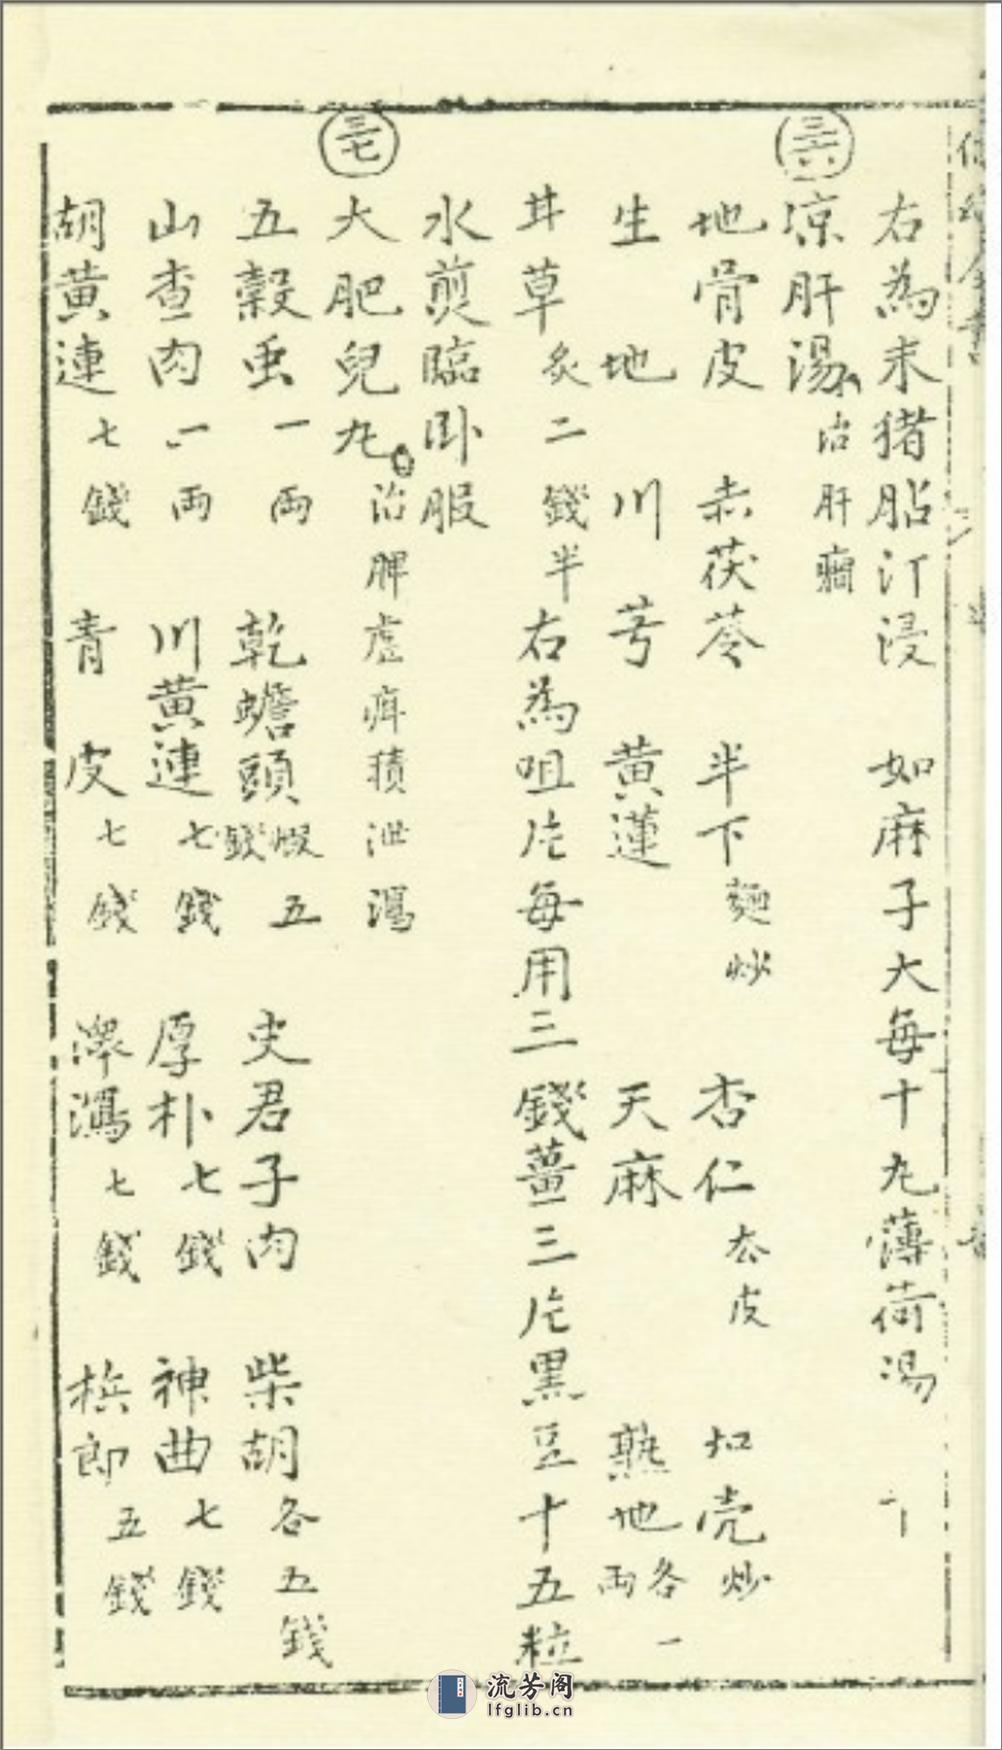 右為末猪胆汀浸 如麻子大每十九薄荷湯 下
三六
涼肝湯 治肝癇
地骨皮 赤茯苓 半下麵炒 杏仁去皮 扣壳炒
生地 川芎 黄蓮 天麻 熟地各一兩
甘草炙二錢半右為咀片每用三錢薑三片黒豆十五粒
水煎臨卧服
三七
大肥兒九 治脾虚疳積泄瀉
五穀虫一兩 乾蟾頭煅五錢 史君子肉 柴胡各五錢
山查肉一兩 川黄連七錢 厚朴七錢 神曲七錢
胡黄連七錢 青皮七錢 澤瀉七錢 梹郎五錢
流芳阁
lfglib.cn